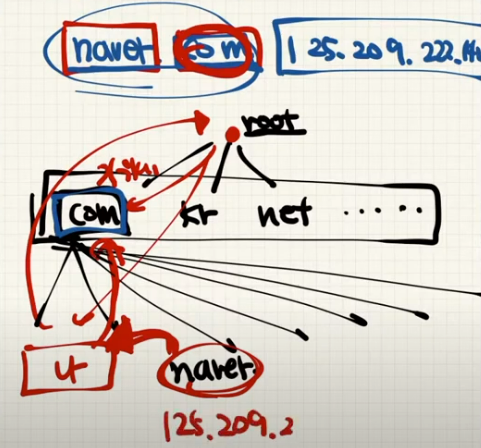 naver com 125.209.222.
root
com kr net ......
나 naver.
125.209.2